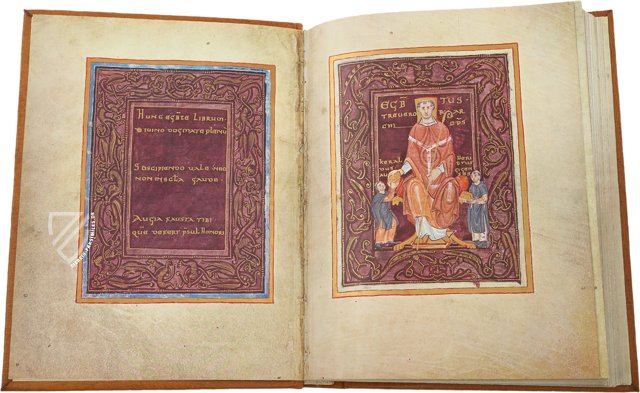 HUNC EGBTE LIBRUM
DIVINO DOGMATE PLENU
SUSCIPIENDO VALE NEC
NON IN SECLA GAUDE
AUGIA FAUSTA TIBI
QUE DEFERT PSUL HONORI
EGB TUS
TREVERO
ARCHI EPS
KERAL
DUS
HERI